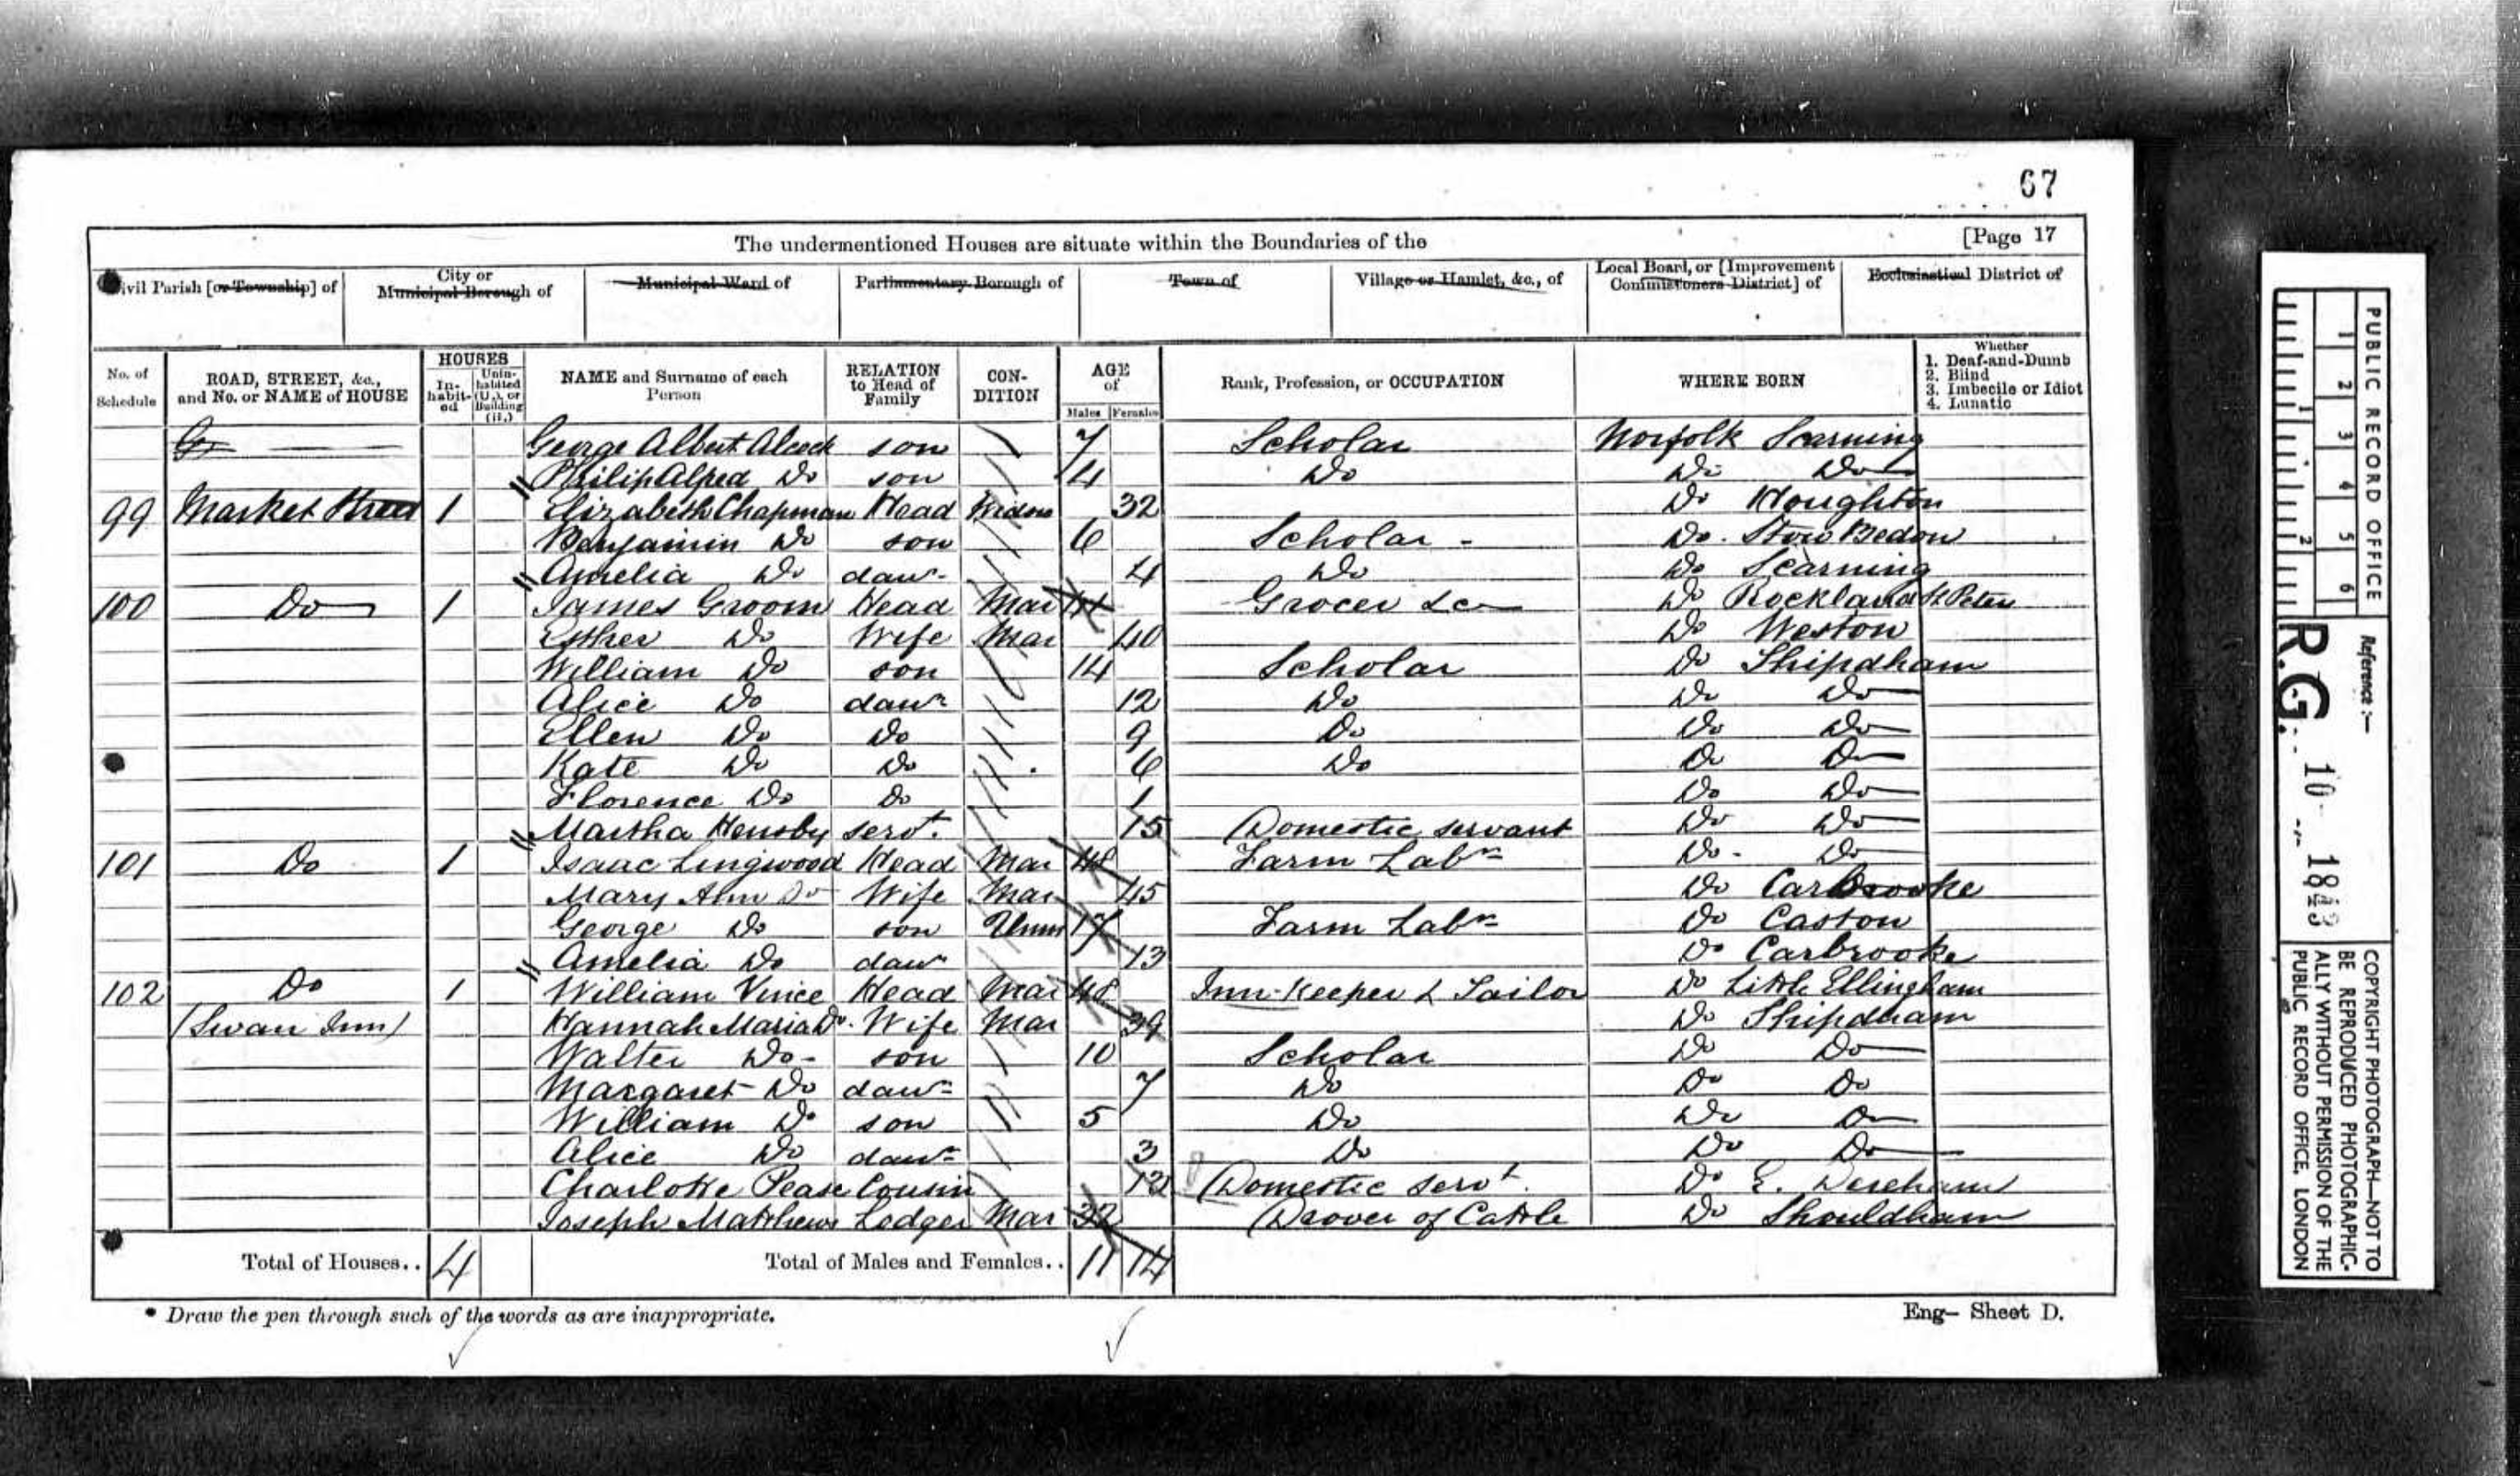 67
The undermentioned Houses are situate within the Boundaries of the [Page 17
Civil Parish [or Township] of
City or Municipal Borough of
Municipal Ward of
Parliamentary Borough of
Town of
Village or Hamlet, &c., of
Local Board, or [Improvement Commissioners District] of
Ecclesiastical District of
No. of Schedule
ROAD, STREET, &c., and No. or NAME of HOUSE
HOUSES
In-habit-ed
Unin-habited (U.), or Building (B.)
NAME and Surname of each Person
RELATION to Head of Family
CON-DITION
AGE of
Males Females
Rank, Profession, or OCCUPATION
WHERE BORN
Whether
1. Deaf-and-Dumb
2. Blind
3. Imbecile or Idiot
4. Lunatic
George Albert Alcock son 7 Scholar Norfolk Scarning
Philip Alfred Do son 4 Do Do Do
99 Market Street 1 Elizabeth Chapman Head Widow 32 Do Houghton
Benjamin Do son 6 Scholar - Do. Stow Bedon
Amelia Do daur. 4 Do Do Scarning
100 Do 1 James Groom Head Mar Grocer &c Do Rockland St Peter
Esther Do Wife Mar 40 Do Weston
William Do son 14 Scholar Do Shipdham
Alice Do daur 12 Do Do Do
Ellen Do Do 9 Do Do Do
Kate Do Do 6 Do Do Do
Florence Do Do 1 Do Do
Martha Hensby servt. 15 Domestic servant Do Do
101 Do 1 Isaac Lingwood Head Mar 48 Farm Labr Do - Do
Mary Ann Do Wife Mar 45 Do Carbrooke
George Do son Unm 17 Farm Labr Do Caston
Amelia Do daur 13 Do Carbrooke
102 Do 1 William Vince Head Mar 48 Inn-Keeper & Tailor Do Little Ellingham
(Swan Inn) Hannah Maria Do. Wife Mar 39 Do Shipdham
Walter Do - son 10 Scholar Do Do
Margaret Do daur 7 Do Do Do
William Do son 5 Do Do Do
Alice Do daur 3 Do Do Do
Charlotte Pease Cousin 12 Domestic servt. Do E. Dereham
Joseph Matthews Lodger Mar 32 Drover of Cattle Do Shouldham
Total of Houses.. 4 Total of Males and Females.. 11 14
* Draw the pen through such of the words as are inappropriate.
Eng— Sheet D.
PUBLIC RECORD OFFICE
1 2 3 4 5 6
1 2
Reference:—
R.G. 10
COPYRIGHT PHOTOGRAPH—NOT TO
BE REPRODUCED PHOTOGRAPHIC-
ALLY WITHOUT PERMISSION OF THE
PUBLIC RECORD OFFICE, LONDON